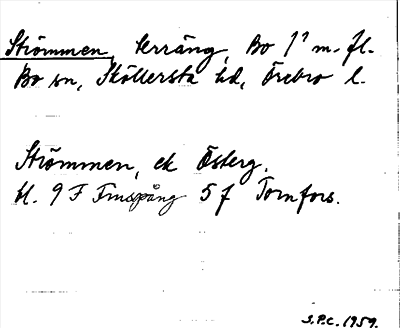 Strömmen, terräng, Bo 1⁹ m. fl.
Bo sn, Sköllersta hd, Örebro l.
Strömmen, ek Österg.
bl. 9 F Finspång 5 f Tornfors.
S.P.C. 1959.